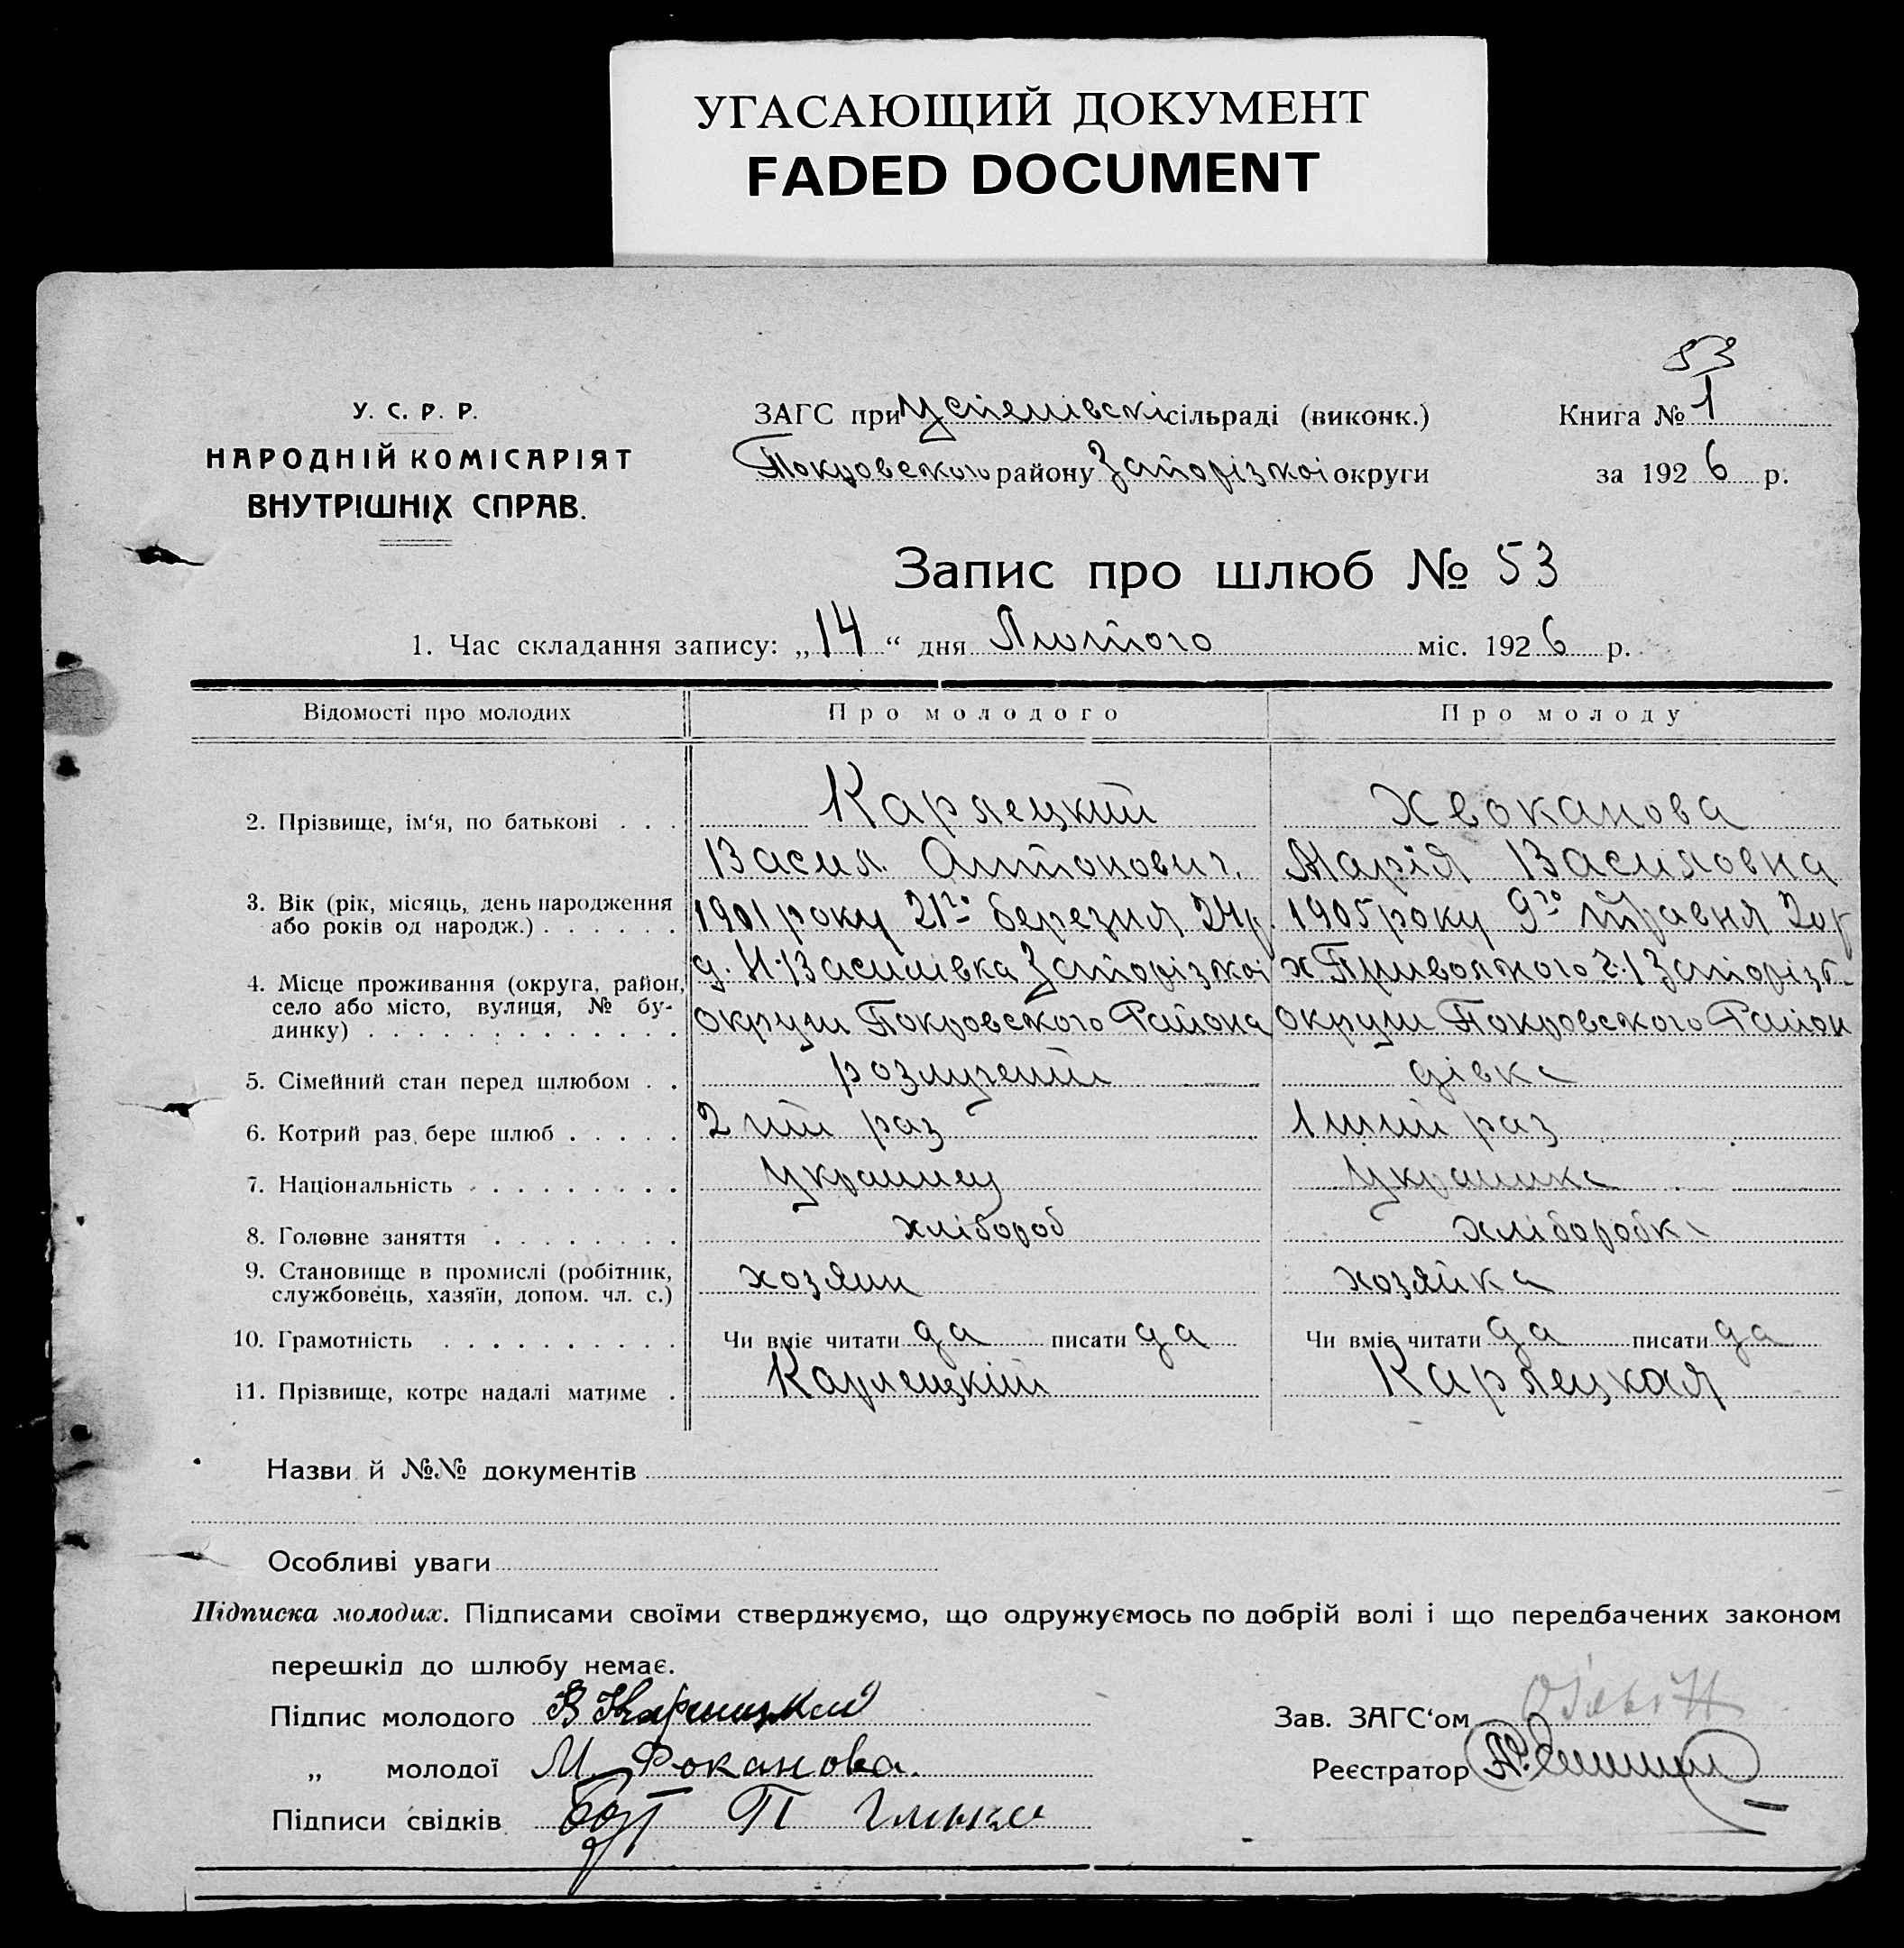 УГАСАЮЩИЙ ДОКУМЕНТ
FADED DOCUMENT
53
У. С. Р. Р.
НАРОДНІЙ КОМІСАРІЯТ
ВНУТРІШНІХ СПРАВ.
ЗАГС при Успенівскі сільраді (виконк.)
Покровского району Запорізкої округи
Книга № 1
за 1926 р.
Запис про шлюб № 53
1. Час складання запису: „14“ дня Лютого міс. 1926 р.
Відомості про молодих Про молодого Про молоду
2. Прізвище, ім‘я, по батькові . . . Карлецкий Хвоканова
Васил Антонович. Марія Василовна
3. Вік (рік, місяць, день народження
або років од народж.) . . . . . . 1901 року 21го березня 24р. 1905 року 9го травня 20р
4. Місце проживання (округа, район, д. Н-Василівка Запорізкої х Привольного №1 Запорізк.
село або місто, вулиця, № бу-
динку) . . . . . . . . . . . . . округи Покровского Района округи Покровского Район
5. Сімейний стан перед шлюбом . . розлучений дівка
6. Котрий раз бере шлюб . . . . . 2 гий раз 1 ший раз
7. Національність . . . . . . . . . Украинец Украинка
8. Головне заняття . . . . . . . . хлібороб хліборобка
9. Становище в промислі (робітник,
службовець, хазяїн, допом. чл. с.) хозяин хозяйка
10. Грамотність . . . . . . . . . . Чи вміє читати да писати да Чи вміє читати да писати да
11. Прізвище, котре надалі матиме . Карлецкий Карлецкая
Назви й №№ документів
Особливі уваги
Підписка молодих. Підписами своїми стверджуємо, що одружуємось по добрій волі і що передбачених законом
перешкід до шлюбу немає.
Підпис молодого В Карлицкий
Зав. ЗАГС‘ом
„ молодої М. Фоканова.
Реєстратор
Підписи свідків П